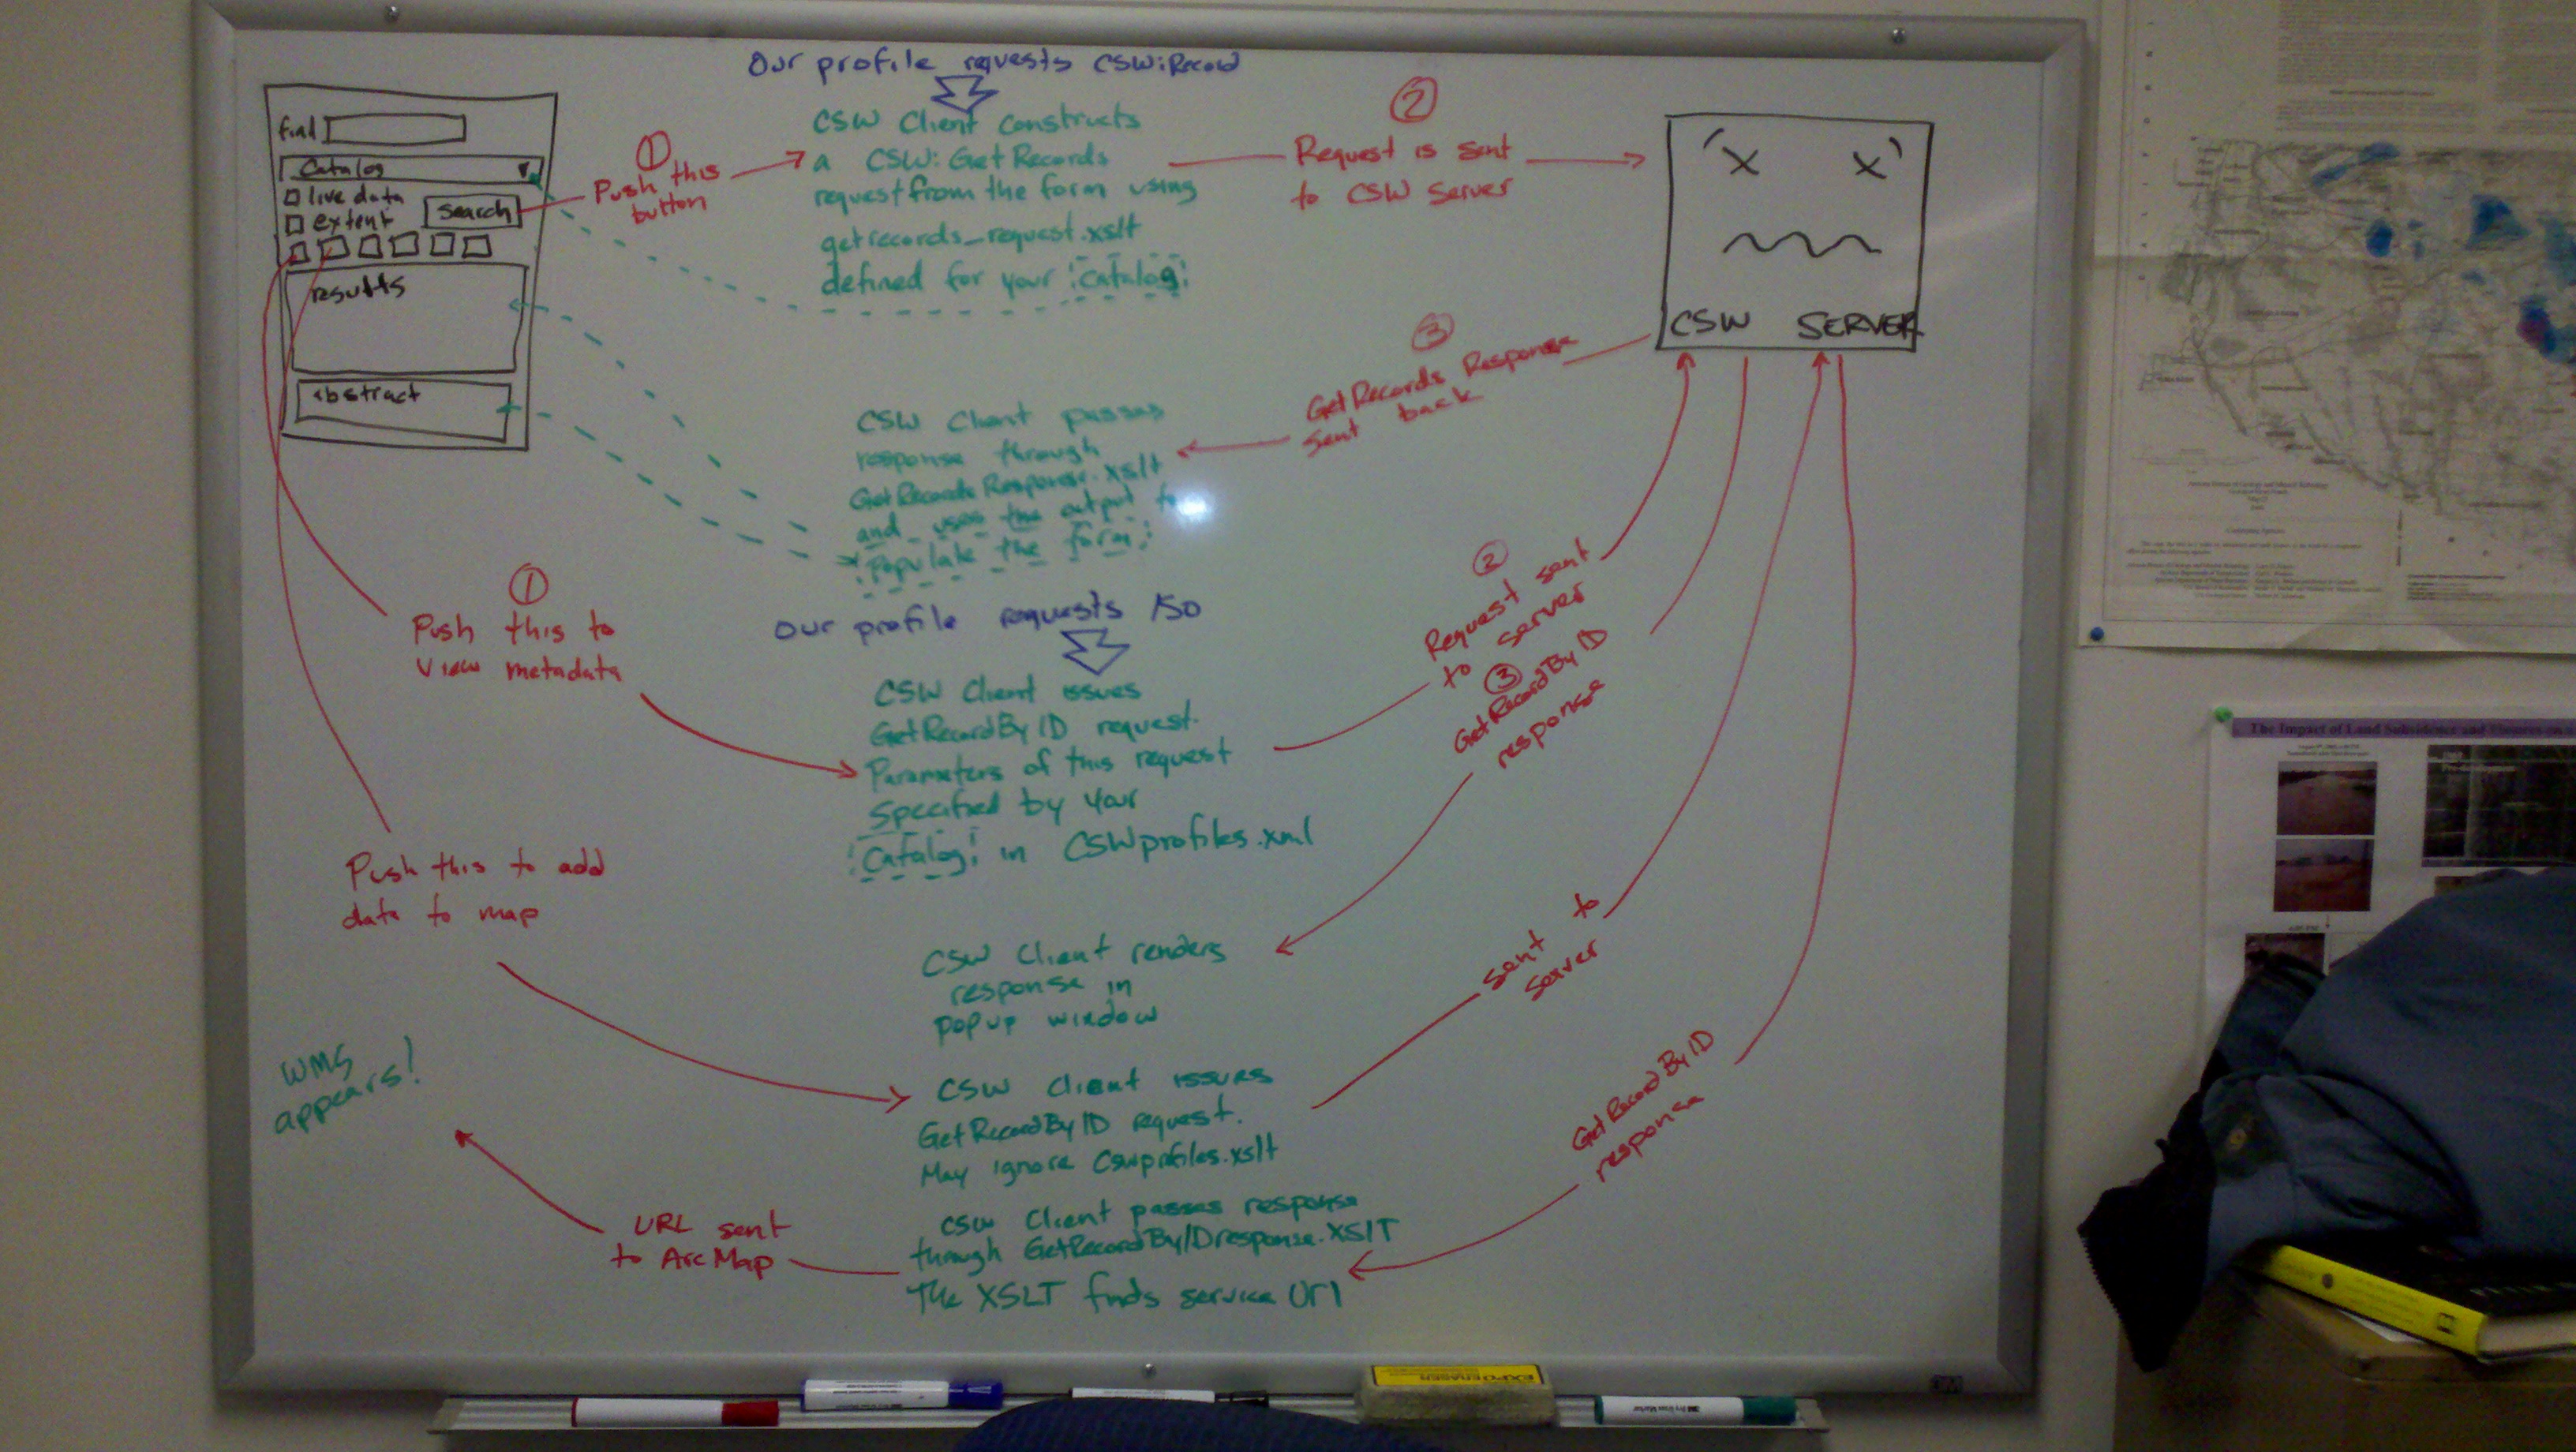 Our profile requests CSW:Record
find
Catalog
live data
extent
search
results
abstract
①
Push this
button
CSW Client constructs
a CSW:GetRecords
request from the form using
getrecords_request.xslt
defined for your catalog
②
Request is sent
to CSW Server
CSW SERVER
③
GetRecords Response
sent back
CSW Client passes
response through
GetRecords Response.xslt
and uses the output to
Populate the form
Our profile requests ISO
①
Push this to
View metadata
CSW Client issues
GetRecordByID request.
Parameters of this request
Specified by your
Catalog in CSWprofiles.xml
②
Request sent
to server
③
GetRecordByID
response
CSW Client renders
response in
popup window
Push this to add
data to map
CSW Client issues
GetRecordByID request.
May ignore CSWprofiles.xslt
sent to
server
GetRecordByID
response
CSW Client passes response
through GetRecordByIDresponse.XSLT
The XSLT finds service Url
URL sent
to ArcMap
WMS
appears!
The Impact of Land Subsidence and Fissures on
EXPO ERASER